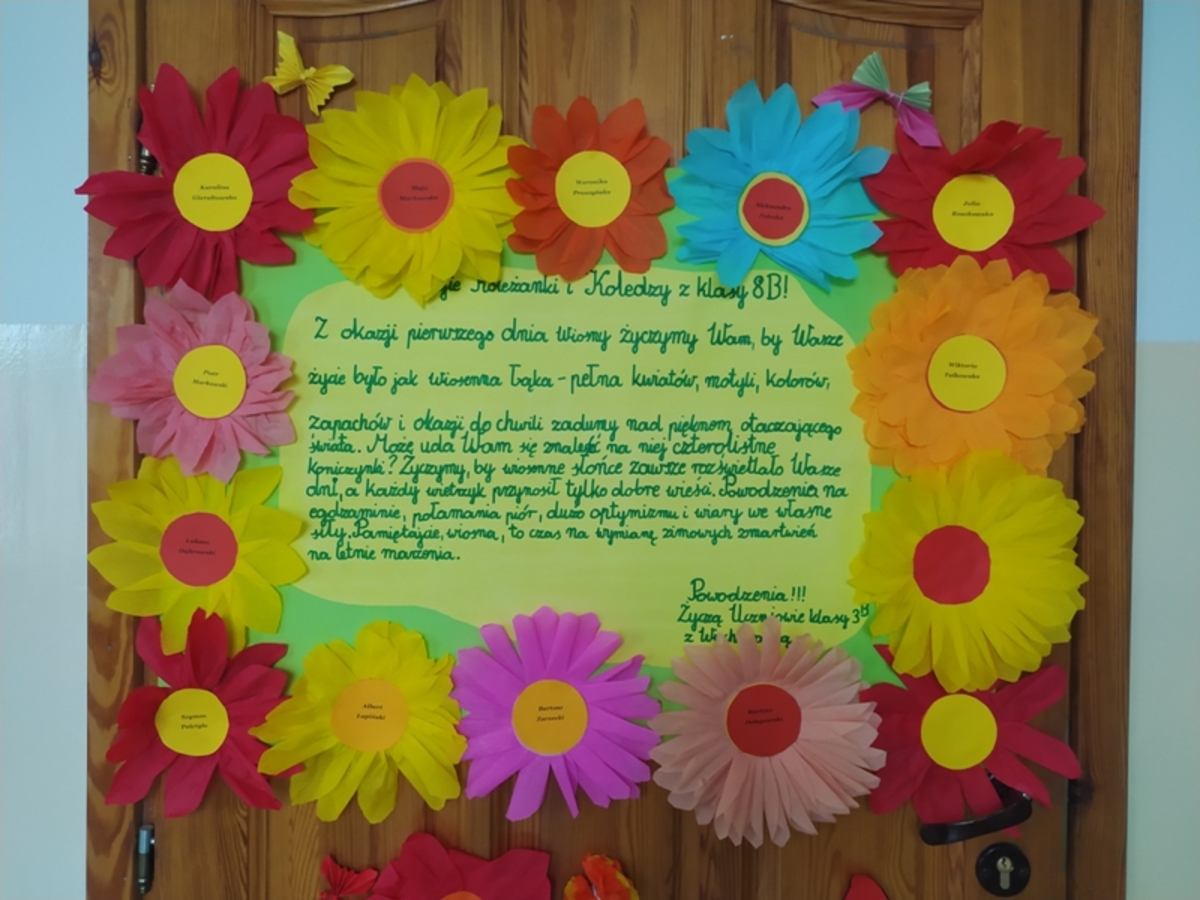 Karolina
Maja
Markowska
Weronika
Aleksandra
Julia
Koleżanki i Koledzy z klasy 8B!
Z okazji pierwszego dnia wiosny życzymy Wam, by Wasze
życie było jak wiosenna łąka - pełna kwiatów, motyli, kolorów,
zapachów i okazji do chwili zadumy nad pięknem otaczającego
świata. Może uda Wam się znaleźć na niej czterolistne
koniczynki? Życzymy, by wiosenne słońce zawsze rozświetlało Wasze
dni, a każdy wietrzyk przynosił tylko dobre wieści. Powodzenia na
egdzaminie, połamania piór, dużo optymizmu i wiary we własne
siły. Pamiętajcie, wiosna, to czas na wymianę zimowych zmartwień
na letnie marzenia.
Powodzenia!!!
Życzą Uczniowie klasy 3B
z
Piotr
Markowski
Wiktoria
Falkowska
Łukasz
Dąbrowski
Szymon
Albert
Łapiński
Bartosz
Jarocki
Bartosz